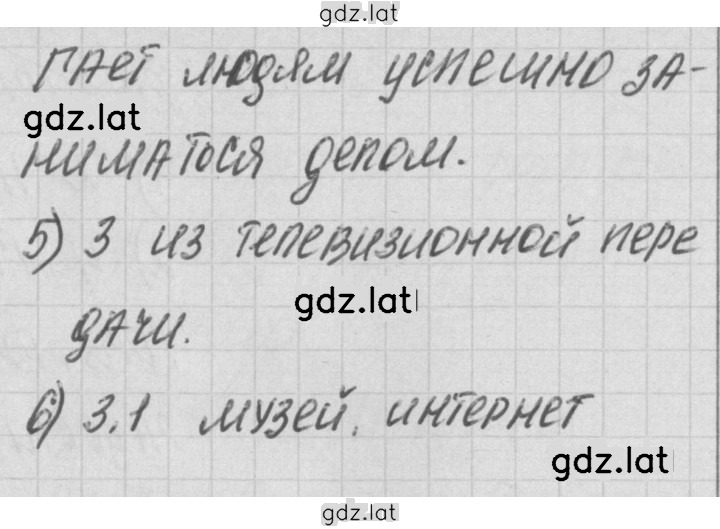 gdz.lat
гает людям успешно за-
gdz.lat
ниматося делом.
5) 3 из телевизионной пере
gdz.lat
дачи.
6) 3,1 музей, интернет
gdz.lat
gdz.lat